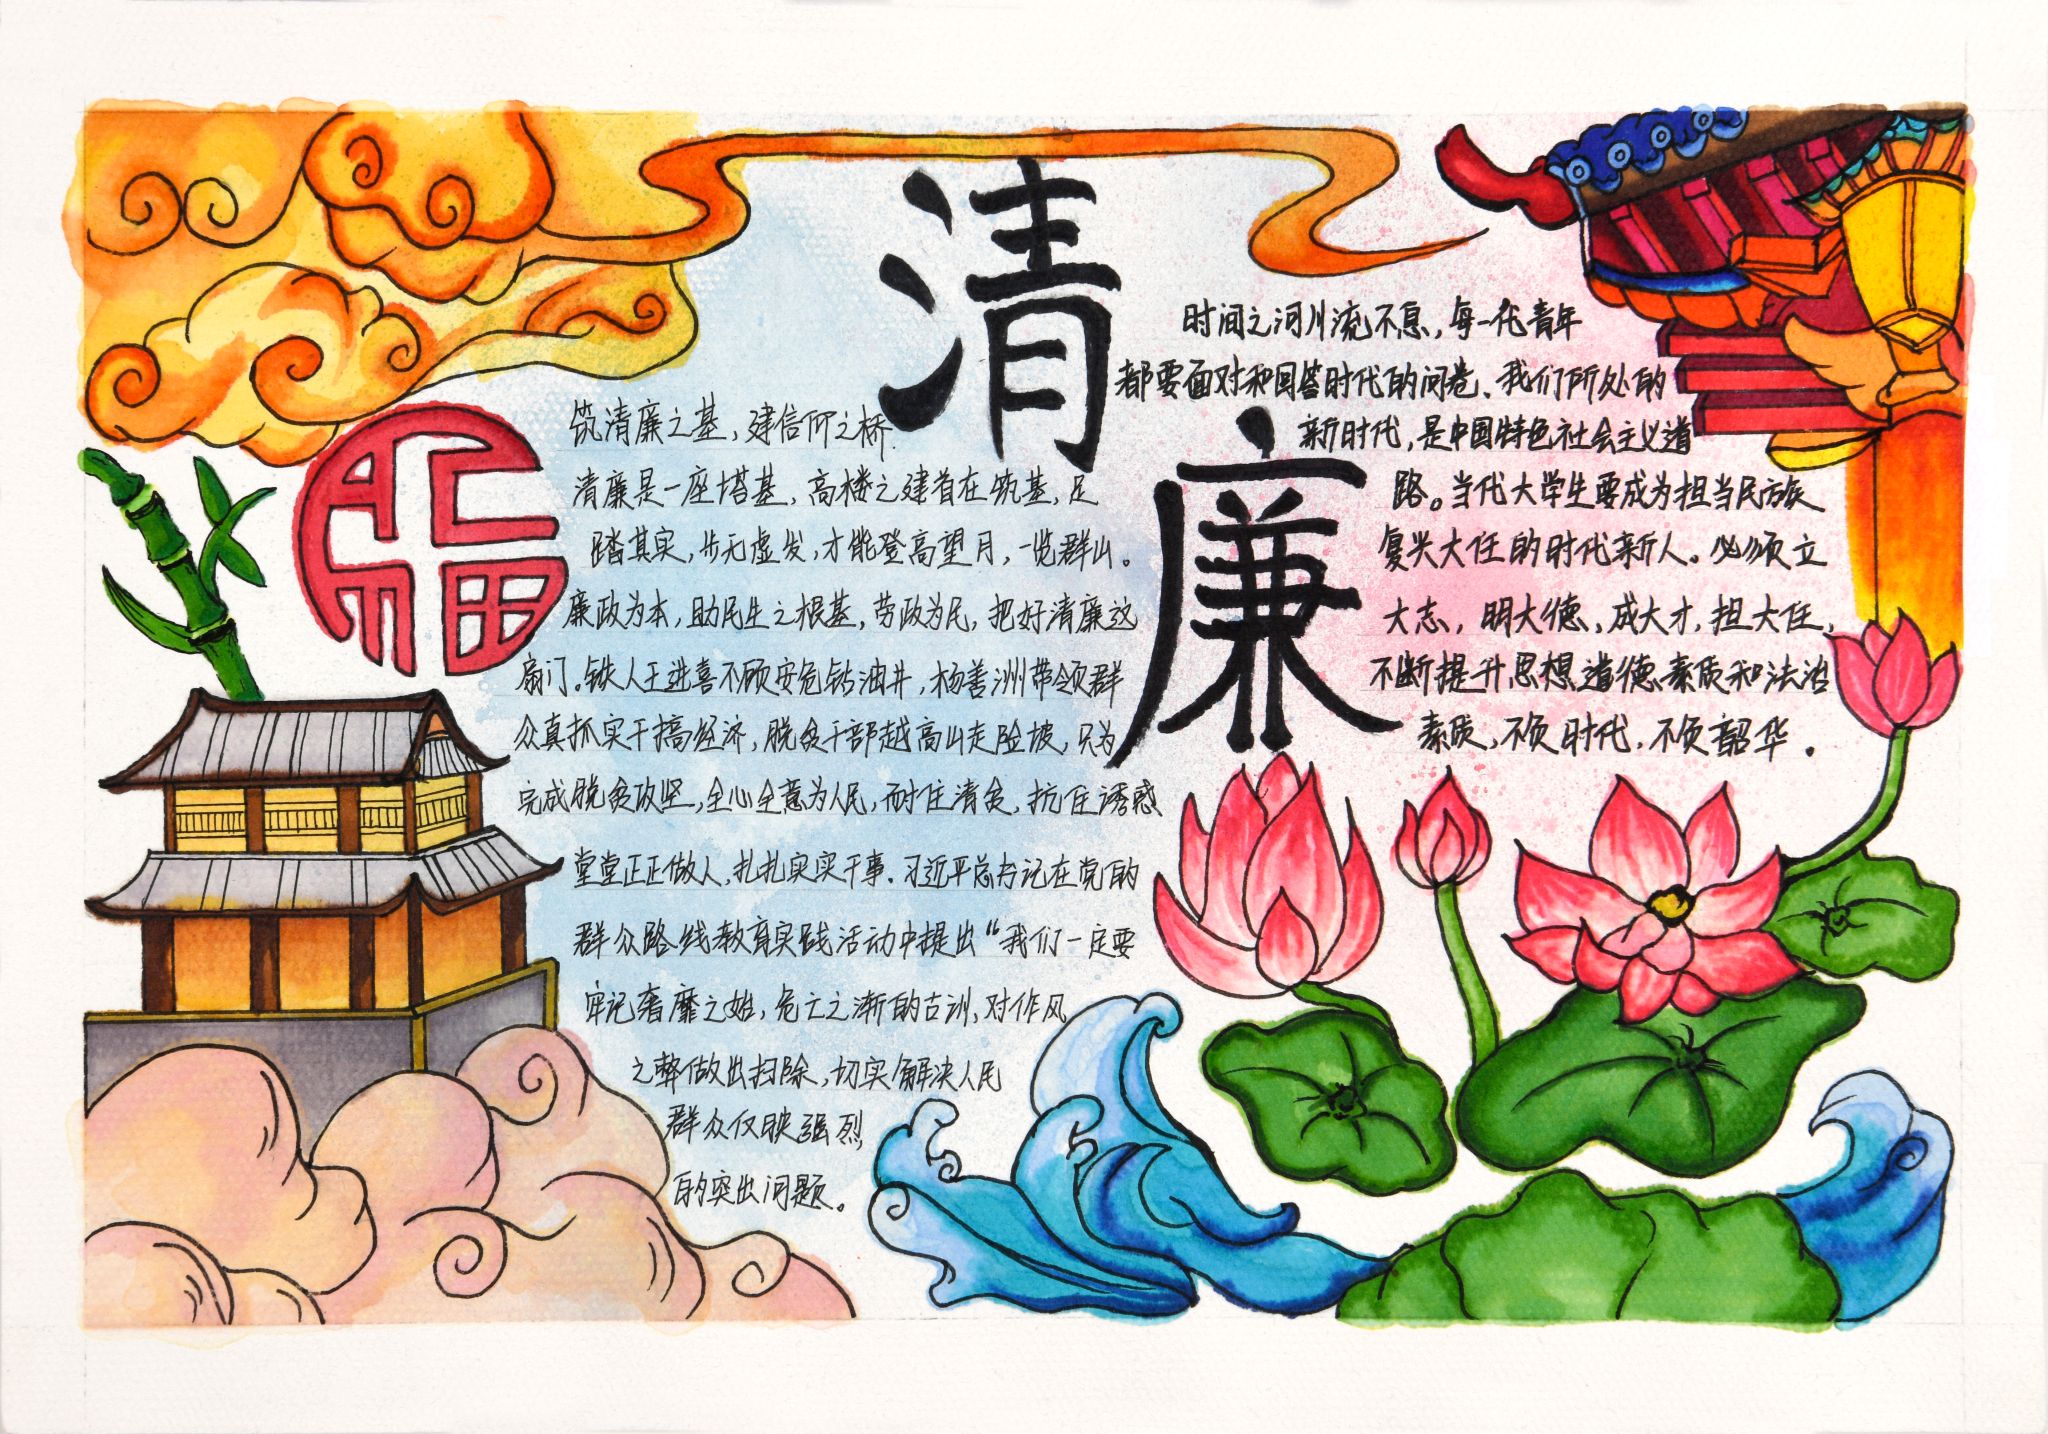 清廉
筑清廉之基，建信仰之桥
清廉是一座塔基，高楼之建首在筑基，足
踏其实，步无虚发，才能登高望月，一览群山。
廉政为本，助民生之根基，劳政为民，把好清廉这
扇门。铁人王进喜不顾安危钻油井，杨善洲带领群
众真抓实干搞经济，脱贫干部越高山走险坡，只为
完成脱贫攻坚，全心全意为人民，耐住清贫，抗住诱惑
堂堂正正做人，扎扎实实干事。习近平总书记在党的
群众路线教育实践活动中提出“我们一定要
牢记奢靡之始，危亡之渐的古训，对作风
之弊做出扫除，切实解决人民
群众仅映强烈
的突出问题。
时间之河川流不息，每一代青年
都要面对和回答时代的问卷、我们所处的
新时代，是中国特色社会主义道
路。当代大学生要成为担当民族
复兴大任的时代新人。必须立
大志，明大德，成大才，担大任，
不断提升思想道德素质和法治
素质，不负时代，不负韶华。
福